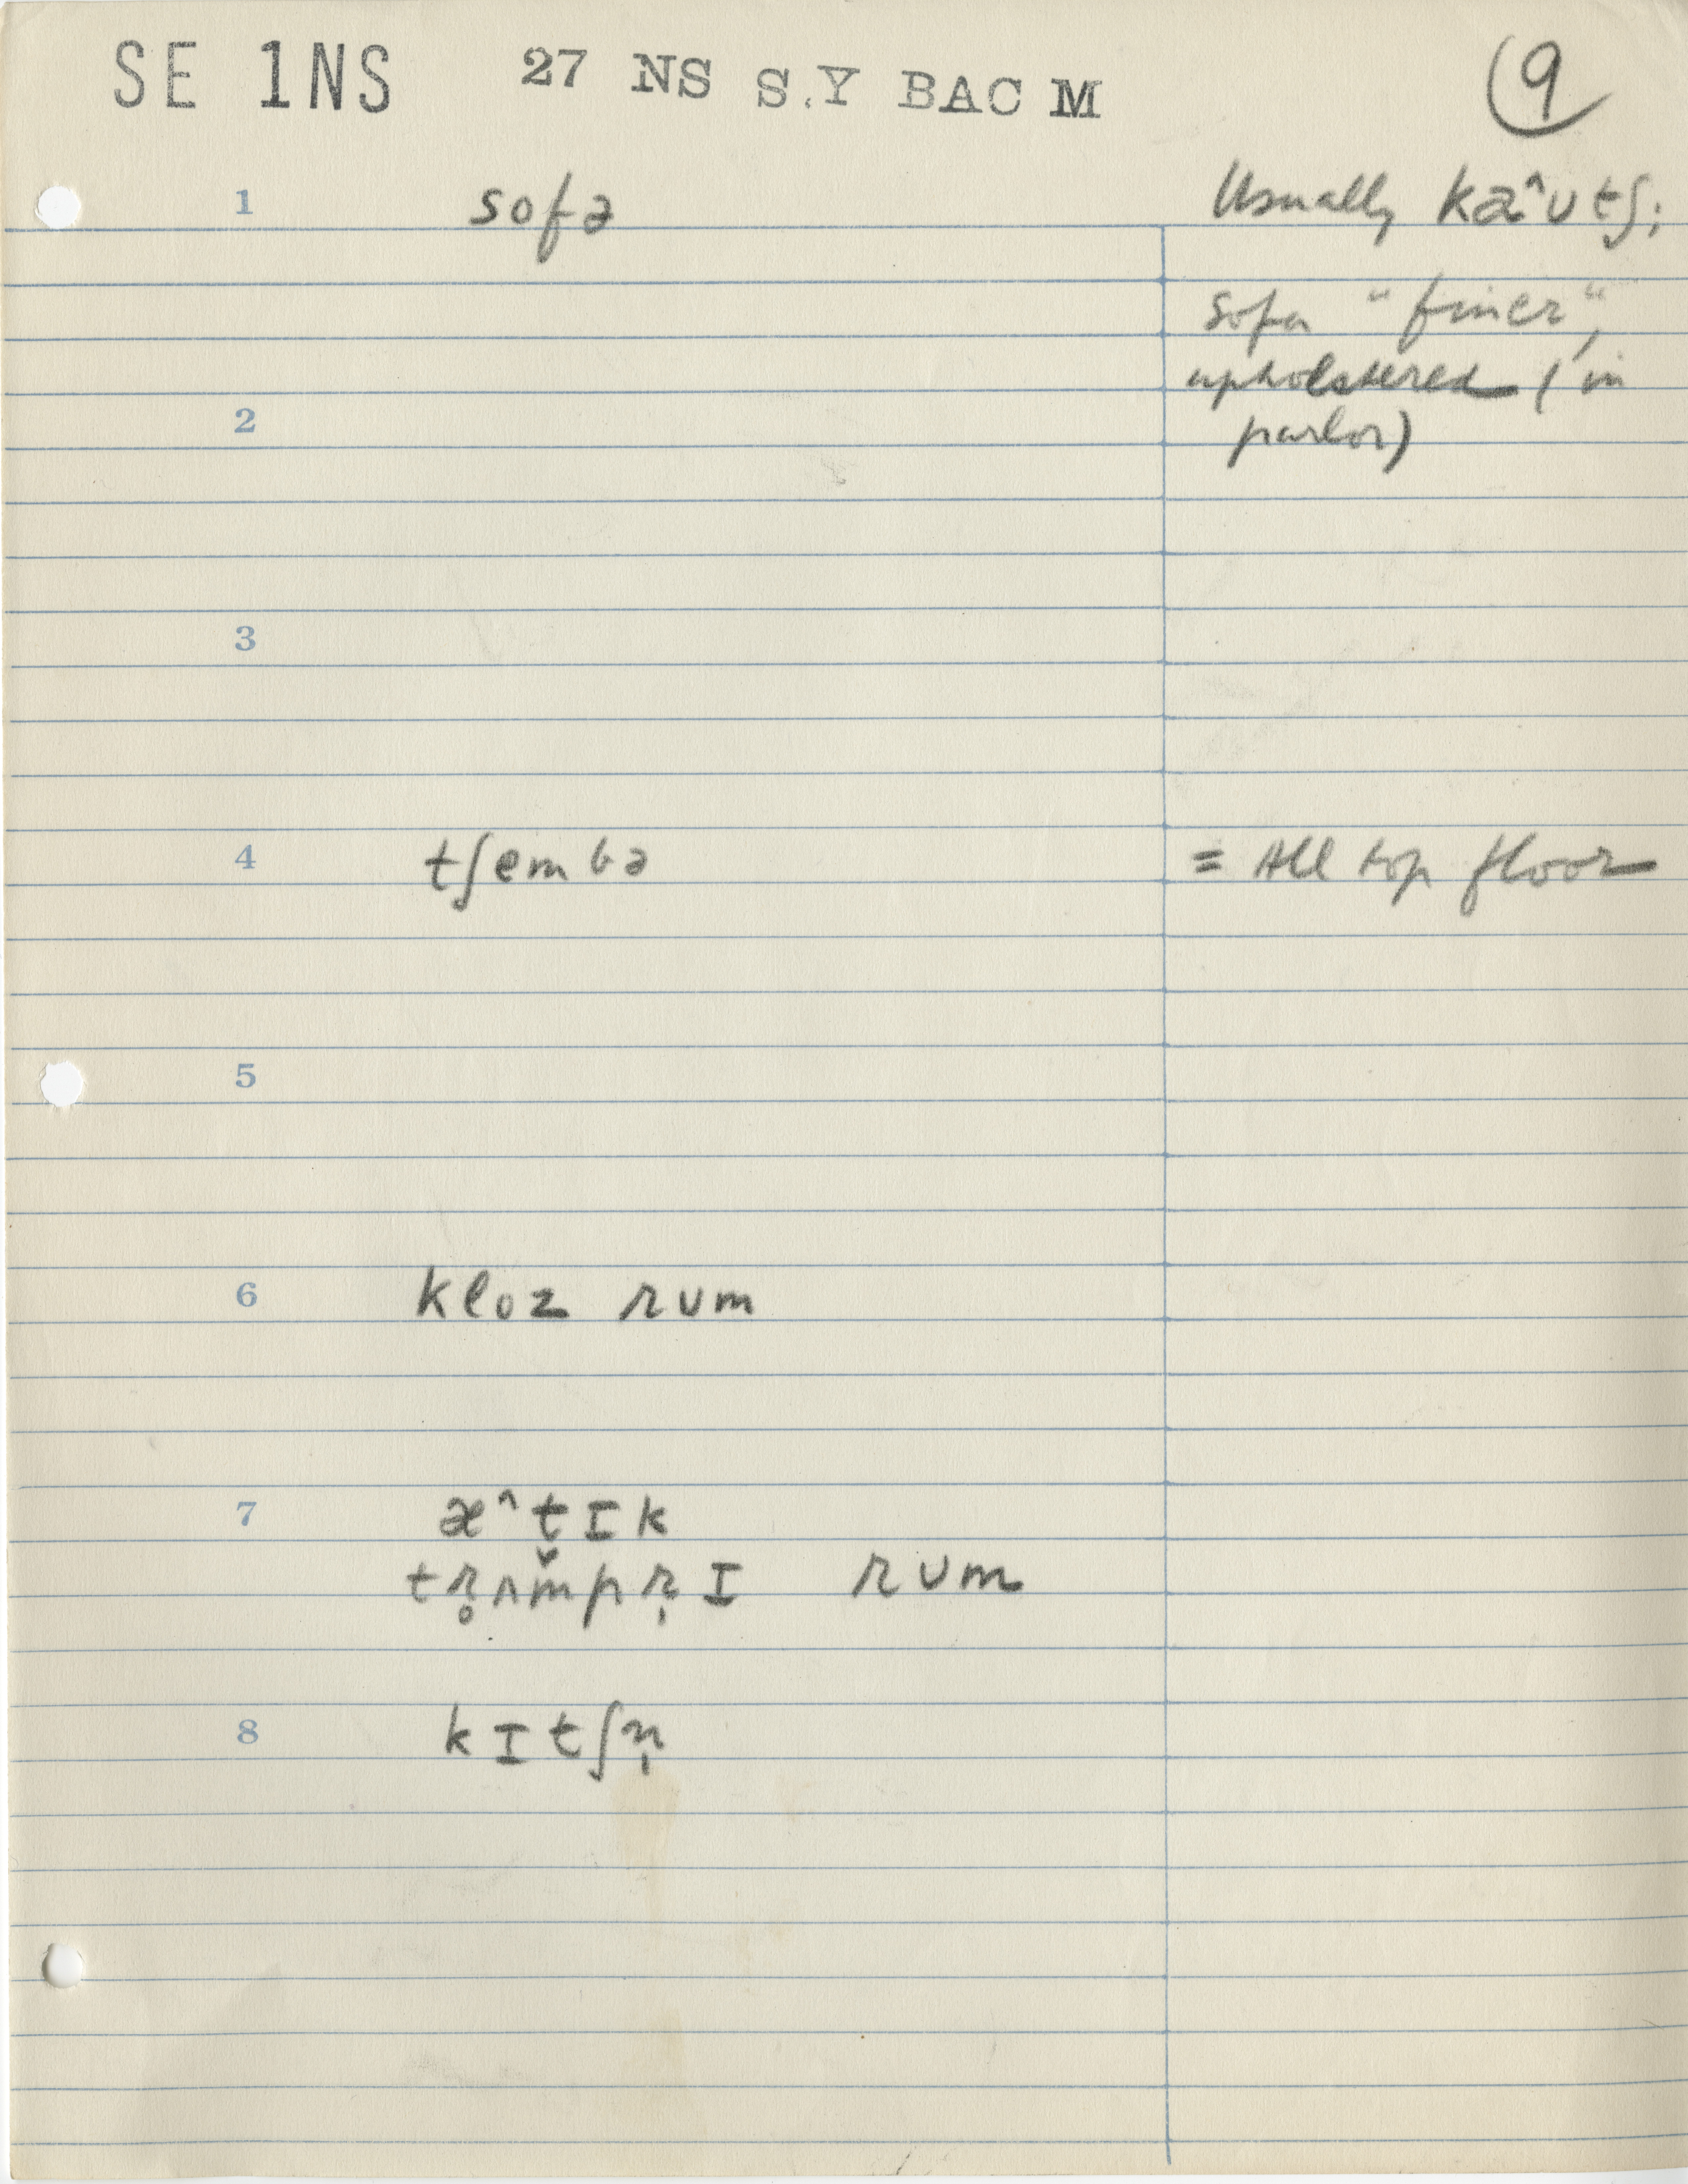 SE 1NS 27 NS S.Y BAC M 9
1 sofə Usually kæ^ʊtʃ;
sofa "finer",
upholstered (in
2 parlor)
3
4 tʃembə = All top floor
5
6 kloz rʊm
7 æ^tɪk
trʌmprɪ rʊm
8 kɪtʃn̩